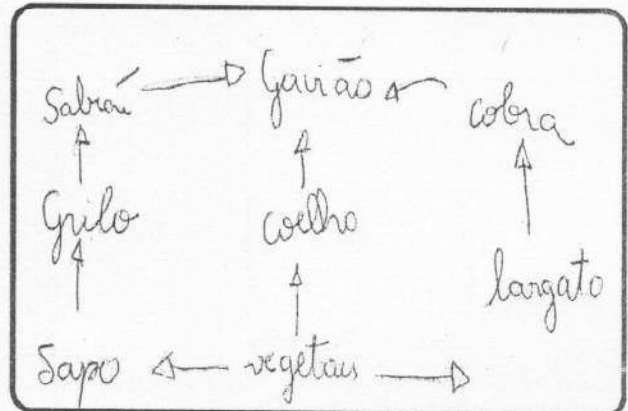 Sabiá Gavião cobra
Grilo coelho
largato
Sapo vegetais